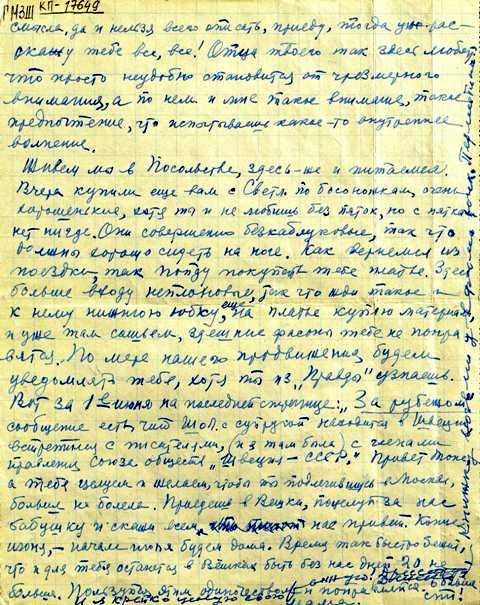 ГМЗШ КП-17649
смысла, да и нельзя всего описать, приеду, тогда уж рас-
скажу тебе все, все! Отца твоего так здесь любят,
что просто неудобно становится от чрезмерного
внимания, а по нем и мне такое внимание, такое
предпочтение, что испытываешь какое-то внутреннее
волнение.
Живем мы в Посольстве, здесь-же и питаемся.
Вчера купили еще вам с Свет. по босоножкам, очень
хорошенькие, хотя ты и не любишь без пяток, но с пятками
нет нигде. Они совершенно безкаблуковые, так что
должны хорошо сидеть на ноге. Как вернемся из
поездки, так пойду покупать тебе платье. Здесь
больше в ходу нейлоновые, так что жди такое и
к нему нижнюю юбку, еще на платье куплю материал
и уже там сошьем, здешние фасоны тебе не понра-
вятся. По мере нашего продвижения будем
уведомлять тебя, хотя ты из "Правды" узнаешь.
Вот за 1ое июня на последней странице: "За рубежом"
сообщение есть, что Шол. с супругой находится в Швеции
встретился с писателями, (и я там была) с членами
правления Союза обществ "Швеция – СССР." Привет Тоне
а тебя целуем и желаем, чтобы ты подлечившись в Москве,
больше не болела. Приедешь в Вешки, поцелуй за нас
бабушку и скажи всем нас привет. Конец
июня, – начале июля будем дома. Время так быстро бежит,
что и для тебя останется в Вешках быть без нас дней 20 не
больше. Пользуйся этим одиночеством и поправляйся
И я крепко целую свою